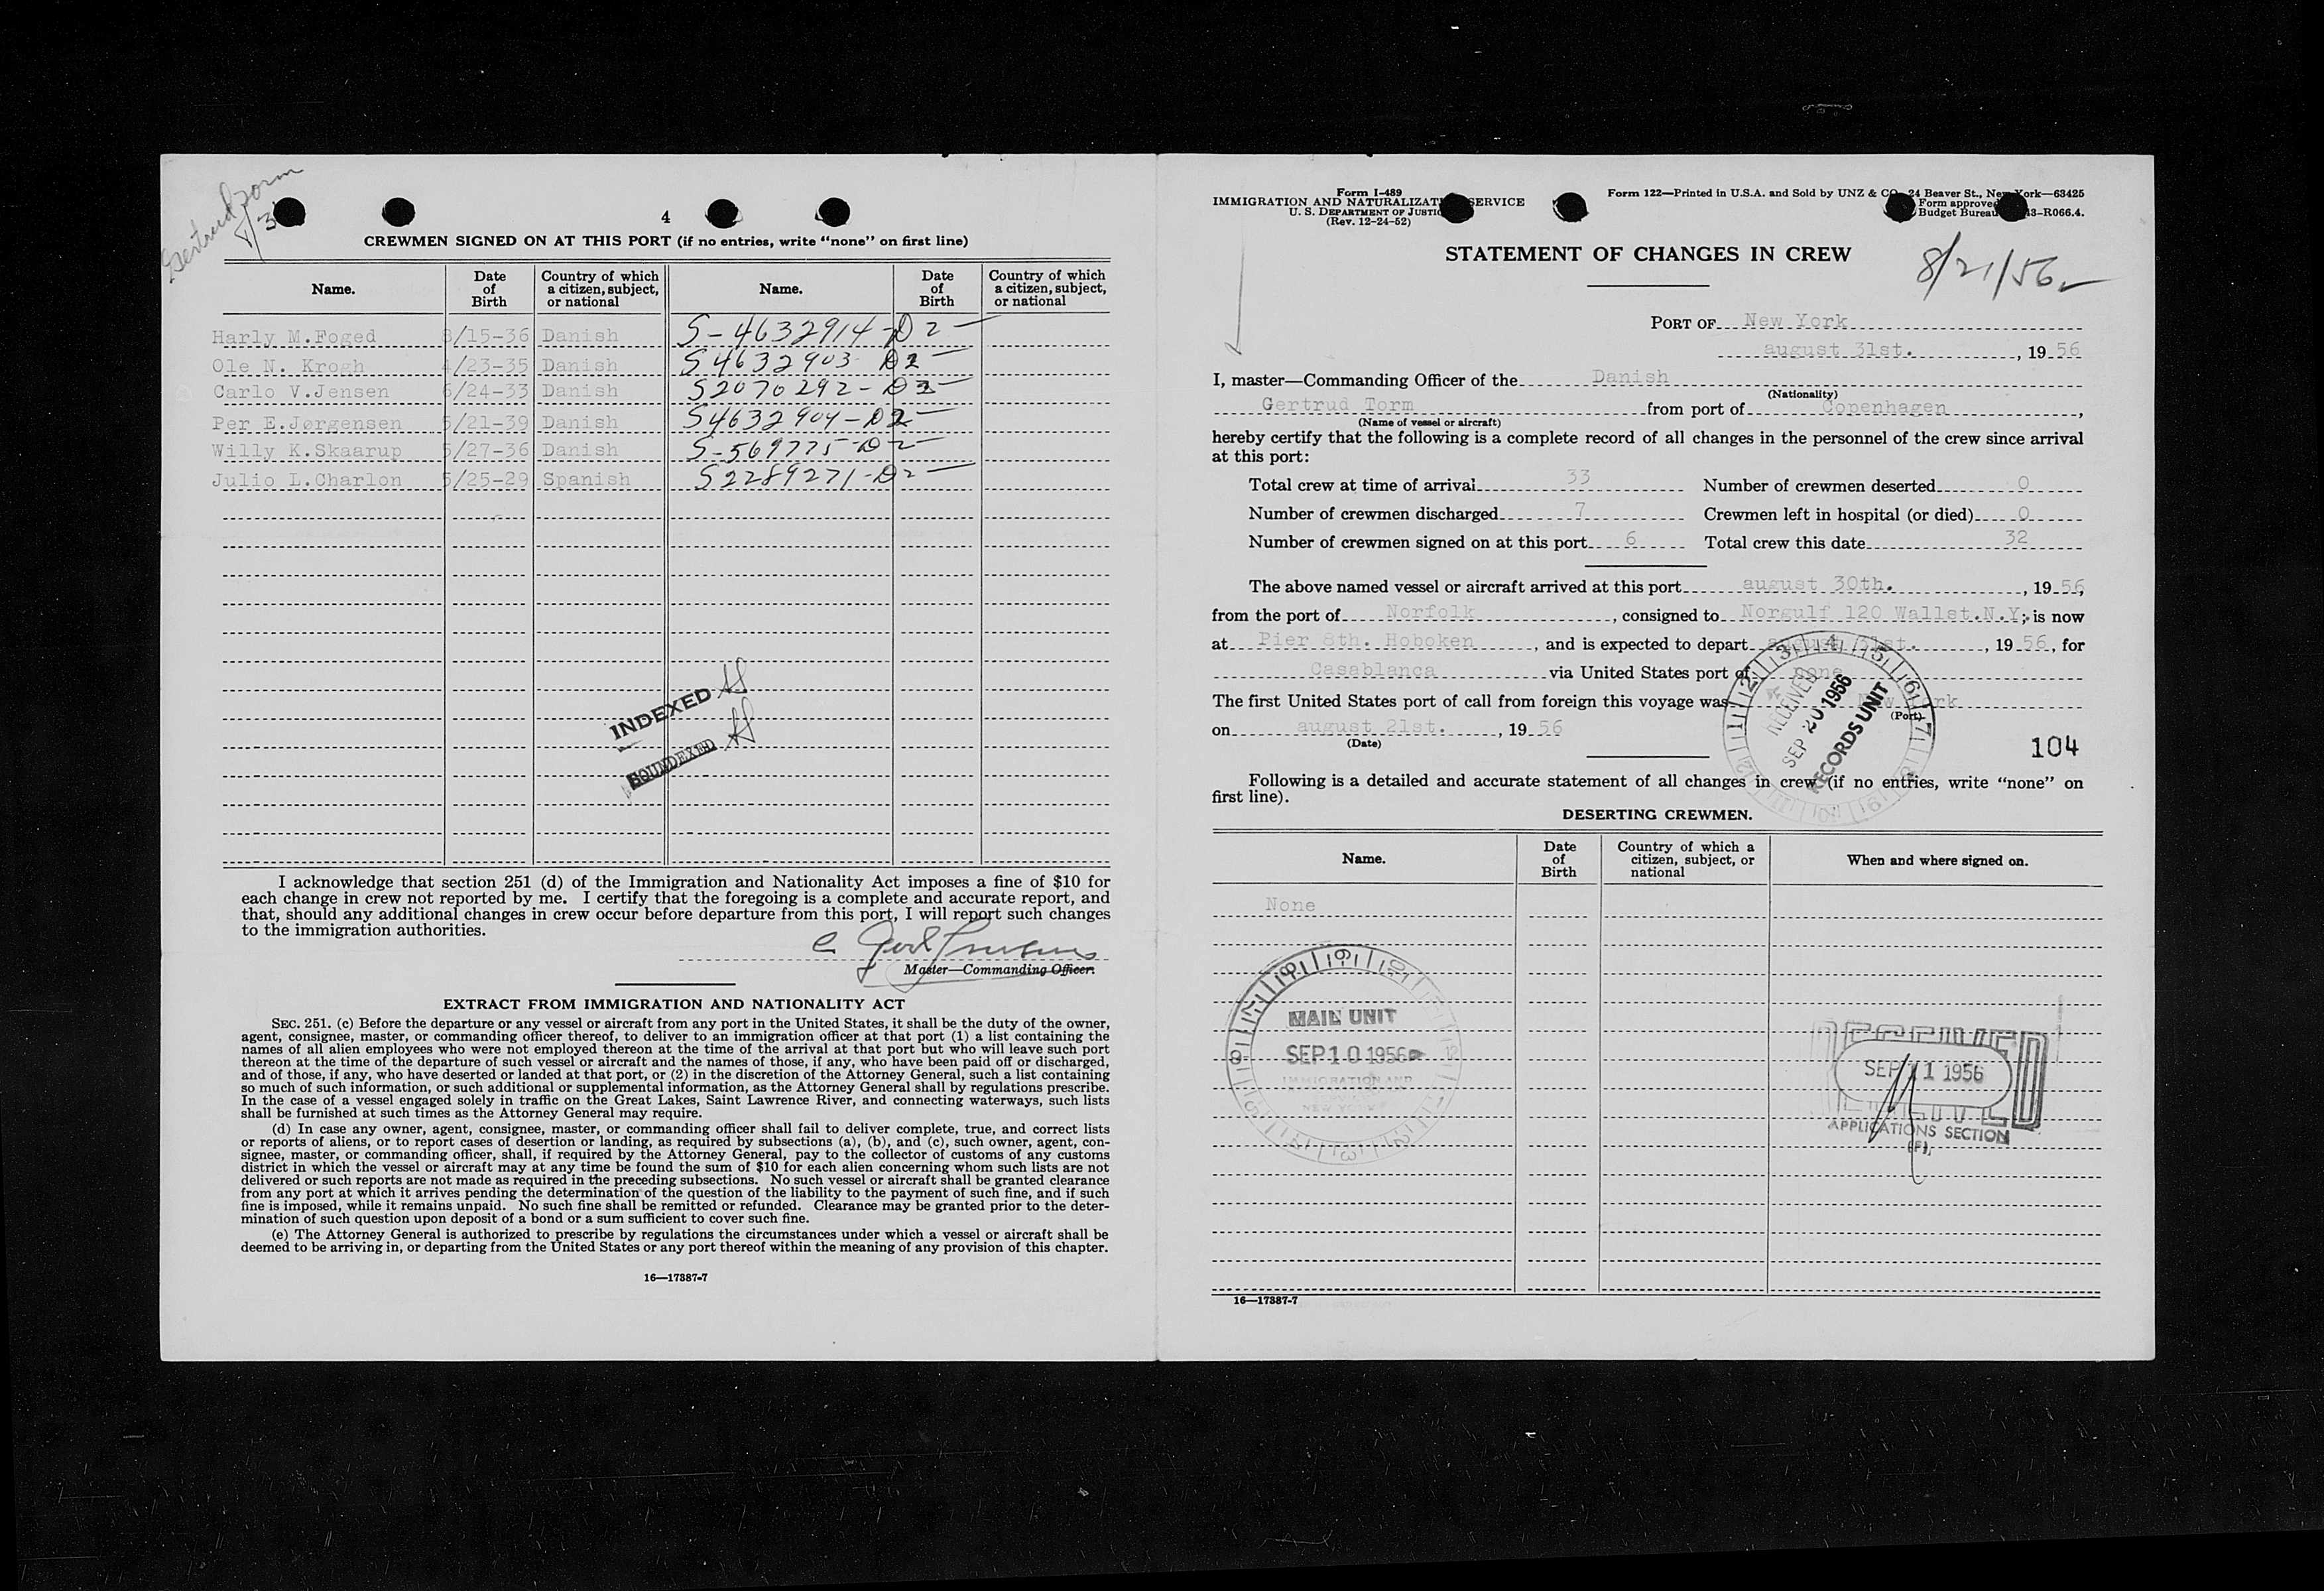 Gertrud Torm
4
CREWMEN SIGNED ON AT THIS PORT (if no entries, write "none" on first line)
Name. Date of Birth Country of which a citizen, subject, or national Name. Date of Birth Country of which a citizen, subject, or national
Harly M.Foged 8/15-36 Danish S-4632914-D2-
Ole N. Krogh 4/23-35 Danish S4632903-D2-
Carlo V.Jensen 6/24-33 Danish S2070292-D2-
Per E.Jørgensen 5/21-39 Danish S4632904-D2-
Willy K.Skaarup 5/27-36 Danish S-569775-D2-
Julio L.Charlon 5/25-29 Spanish S2289271-D2-
INDEXED
SOUNDEXED
I acknowledge that section 251 (d) of the Immigration and Nationality Act imposes a fine of $10 for
each change in crew not reported by me. I certify that the foregoing is a complete and accurate report, and
that, should any additional changes in crew occur before departure from this port, I will report such changes
to the immigration authorities.
Master—Commanding Officer.
EXTRACT FROM IMMIGRATION AND NATIONALITY ACT
SEC. 251. (c) Before the departure or any vessel or aircraft from any port in the United States, it shall be the duty of the owner,
agent, consignee, master, or commanding officer thereof, to deliver to an immigration officer at that port (1) a list containing the
names of all alien employees who were not employed thereon at the time of the arrival at that port but who will leave such port
thereon at the time of the departure of such vessel or aircraft and the names of those, if any, who have been paid off or discharged,
and of those, if any, who have deserted or landed at that port, or (2) in the discretion of the Attorney General, such a list containing
so much of such information, or such additional or supplemental information, as the Attorney General shall by regulations prescribe.
In the case of a vessel engaged solely in traffic on the Great Lakes, Saint Lawrence River, and connecting waterways, such lists
shall be furnished at such times as the Attorney General may require.
(d) In case any owner, agent, consignee, master, or commanding officer shall fail to deliver complete, true, and correct lists
or reports of aliens, or to report cases of desertion or landing, as required by subsections (a), (b), and (c), such owner, agent, con-
signee, master, or commanding officer, shall, if required by the Attorney General, pay to the collector of customs of any customs
district in which the vessel or aircraft may at any time be found the sum of $10 for each alien concerning whom such lists are not
delivered or such reports are not made as required in the preceding subsections. No such vessel or aircraft shall be granted clearance
from any port at which it arrives pending the determination of the question of the liability to the payment of such fine, and if such
fine is imposed, while it remains unpaid. No such fine shall be remitted or refunded. Clearance may be granted prior to the deter-
mination of such question upon deposit of a bond or a sum sufficient to cover such fine.
(e) The Attorney General is authorized to prescribe by regulations the circumstances under which a vessel or aircraft shall be
deemed to be arriving in, or departing from the United States or any port thereof within the meaning of any provision of this chapter.
16—17387-7
Form I-489
IMMIGRATION AND NATURALIZATI SERVICE
U. S. DEPARTMENT OF JUSTIC
(Rev. 12-24-52)
Form 122—Printed in U.S.A. and Sold by UNZ & CO 24 Beaver St., New York—63425
Form approved
Budget Bureau 43-R066.4.
STATEMENT OF CHANGES IN CREW
8/21/56
PORT OF New York
august 31st. , 19 56
I, master—Commanding Officer of the Danish
(Nationality)
Gertrud Torm from port of Copenhagen ,
(Name of vessel or aircraft)
hereby certify that the following is a complete record of all changes in the personnel of the crew since arrival
at this port:
Total crew at time of arrival 33 Number of crewmen deserted 0
Number of crewmen discharged 7 Crewmen left in hospital (or died) 0
Number of crewmen signed on at this port 6 Total crew this date 32
The above named vessel or aircraft arrived at this port august 30th. , 19 56,
from the port of Norfolk , consigned to Norgulf 120 Wallst.N.Y; is now
at Pier 8th. Hoboken , and is expected to depart august 31st. , 19 56, for
Casablanca via United States port of none
The first United States port of call from foreign this voyage was New York
(Port)
on august 21st. , 19 56
(Date)
RECEIVED
SEP 20 1956
RECORDS UNIT
104
Following is a detailed and accurate statement of all changes in crew (if no entries, write "none" on
first line).
DESERTING CREWMEN.
Name. Date of Birth Country of which a citizen, subject, or national When and where signed on.
None
MAIL UNIT
SEP 10 1956
IMMIGRATION AND
NEW YORK
RECEIVED
SEP 11 1956
APPLICATIONS SECTION
(F)
16—17387-7